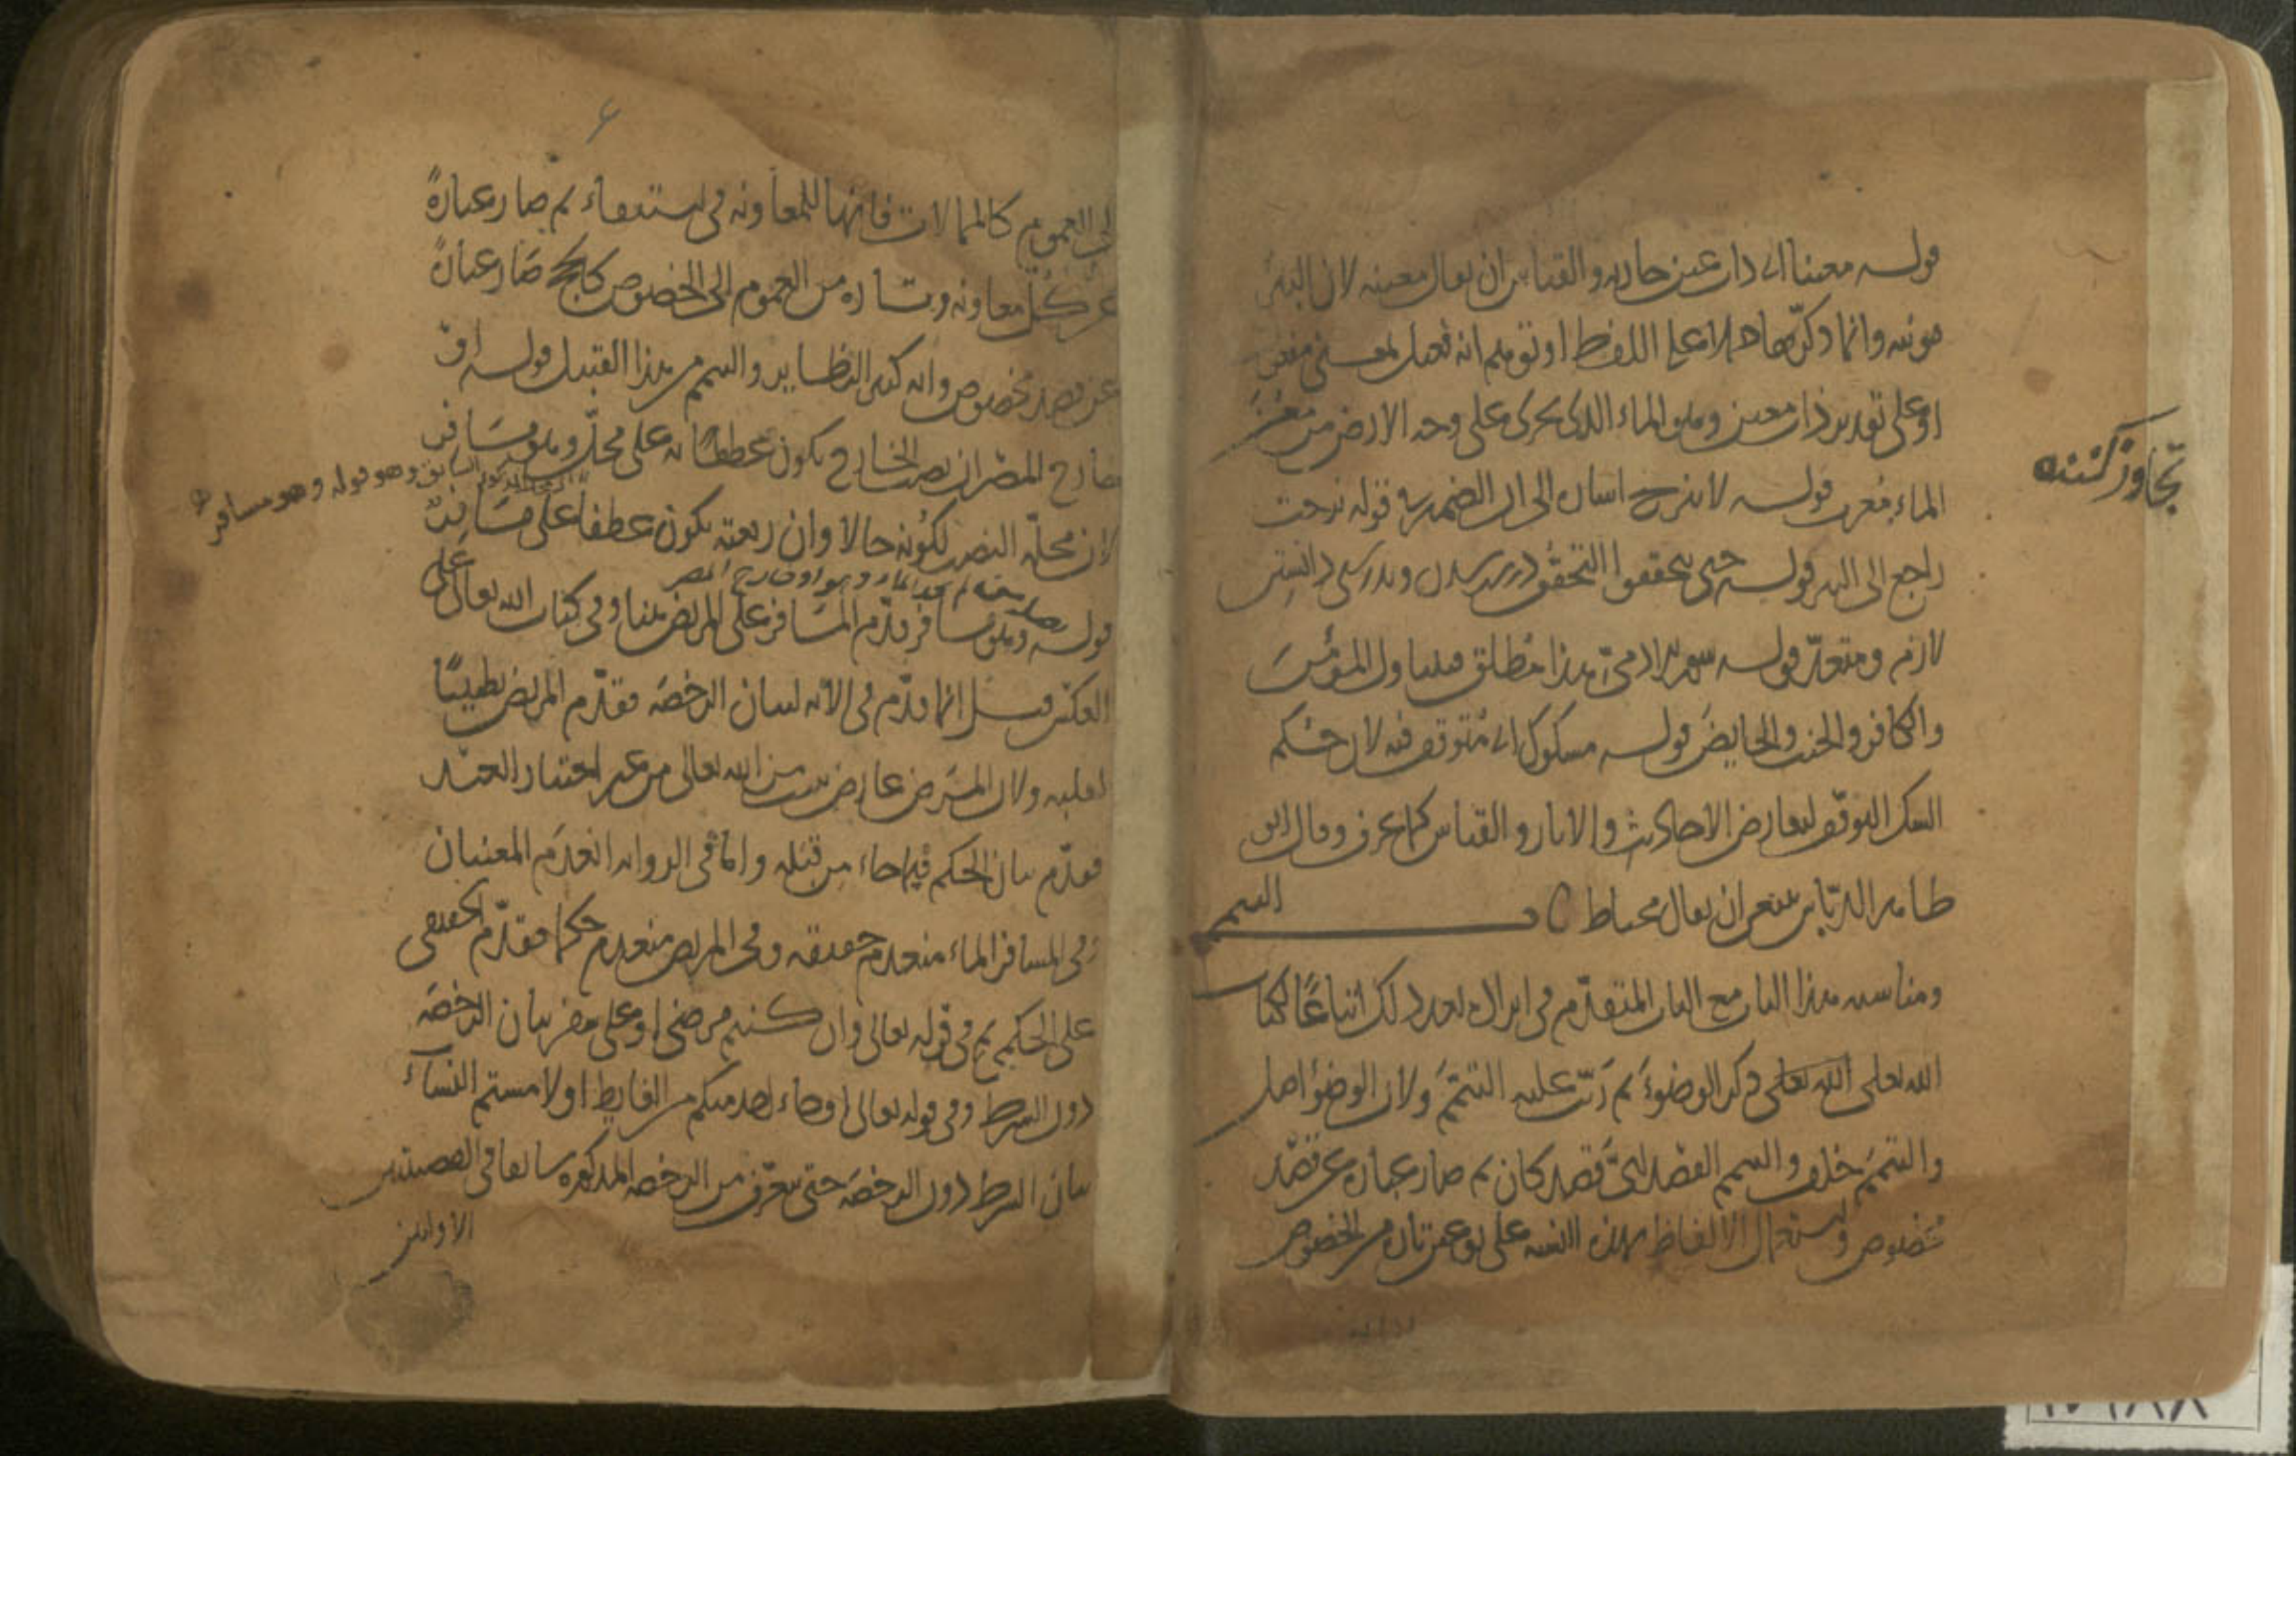 قوله معينا اى ذات عين جارية والقياس ان يقال معينة لان البئر
مونثة وانما ذكرها حملا على اللفظ او توهم انه فعيل بمعنى مفعول
او على تقدير ذات معين وهو الماء الذى يجرى على وجه الارض من معن
الماء قوله لا ينزح اشارة الى ان الضمير فى قوله نزحت
راجع الى البئر قوله حتى يتحققوا التحقق
لازم ومتعد قوله سور الادمى هذا مطلق فيتناول المؤمن
والكافر والجنب والحايض قوله مشكوك اى متوقف فيه لان حكم
الشك التوقف لتعارض الاحاديث والاثار والقياس كما عرف وقال ابو
طاهر الدباس ينبغى ان يقال محتاط
التيمم
ومناسبة هذا الباب مع الباب المتقدم فى ايراده بعد ذلك اتباعا لكتاب
الله تعلى الله تعالى ذكر الوضوء ثم رتب عليه التيمم ولان الوضؤ اصل
والتيمم خلف والتيمم القصد اىّ قصد كان ثم صار عبارة عن قصد
مخصوص واستعمال الالفاظ بهذه على نوعين تارة من الخصوص
تجاوز كننده
الى العموم كالممالات فانها للمعاونة فى استقاء ثم صار عبارة
عن كل معاونة وتارة من العموم الى الخصوص كالحج صار عبارة
عن قصد مخصوص وانه كثير النظاير والتيمم من هذا القبيل قوله او
خارج المصر ان نصب الخارج يكون عطفا له على محل وهو مسافر
السابق وهو قوله وهو مسافر
لان محله النصب لكونه حالا وان رفعته يكون عطفا على مسافر
قوله وهو مسافر قدم المسافر على المريض هنا وفى كتاب الله تعالى على
العكس قيل انما قدم فى الاية لبيان الرخصة فقدم المريض تطييبا
لقلبه ولان المرض عارض يثبت من الله تعالى من غير اختيار العبد
فقدم بيان الحكم فيما جاء من قبله واما فى الرواية انعدم المعنيان
وفى المسافر الماء منعدم حقيقة وفى المريض منعدم حكما فقدم الحقيقى
على الحكمى ثم فى قوله تعالى وان كنتم مرضى او على سفر بيان الرخصة
دون الشرط وفى قوله تعالى او جاء احد منكم من الغايط او لامستم النساء
بيان الشرط دون الرخصة حتى يتعرف من الرخصة المذكورة سابقا فى القصتين
الاوليين